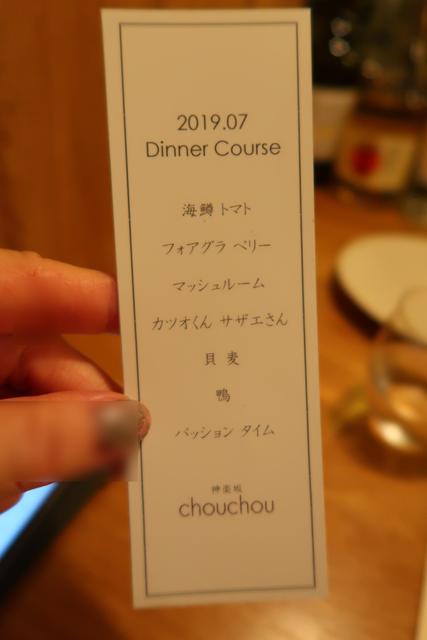 2019.07
Dinner Course
海鱒 トマト
フォアグラ ベリー
マッシュルーム
カツオくん サザエさん
貝 麦
鴨
パッション タイム
神楽坂
chouchou